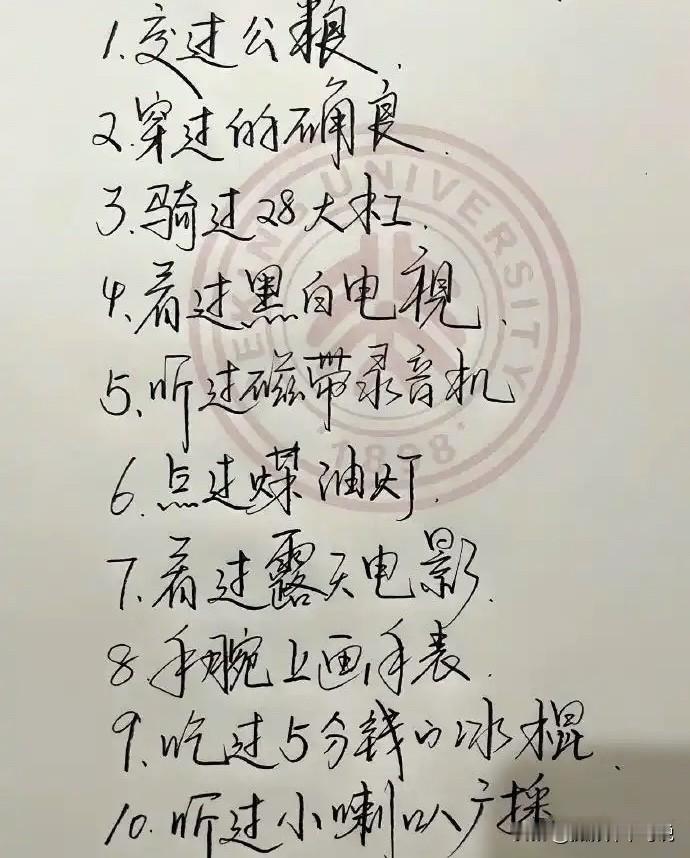 1.交过公粮.
2.穿过的确良.
3.骑过28大杠.
4.看过黑白电视.
5.听过磁带录音机
6.点过煤油灯.
7.看过露天电影.
8.手腕上画手表.
9.吃过5分钱的冰棍.
10.听过小喇叭广播
EKING UNIVERSITY
1898